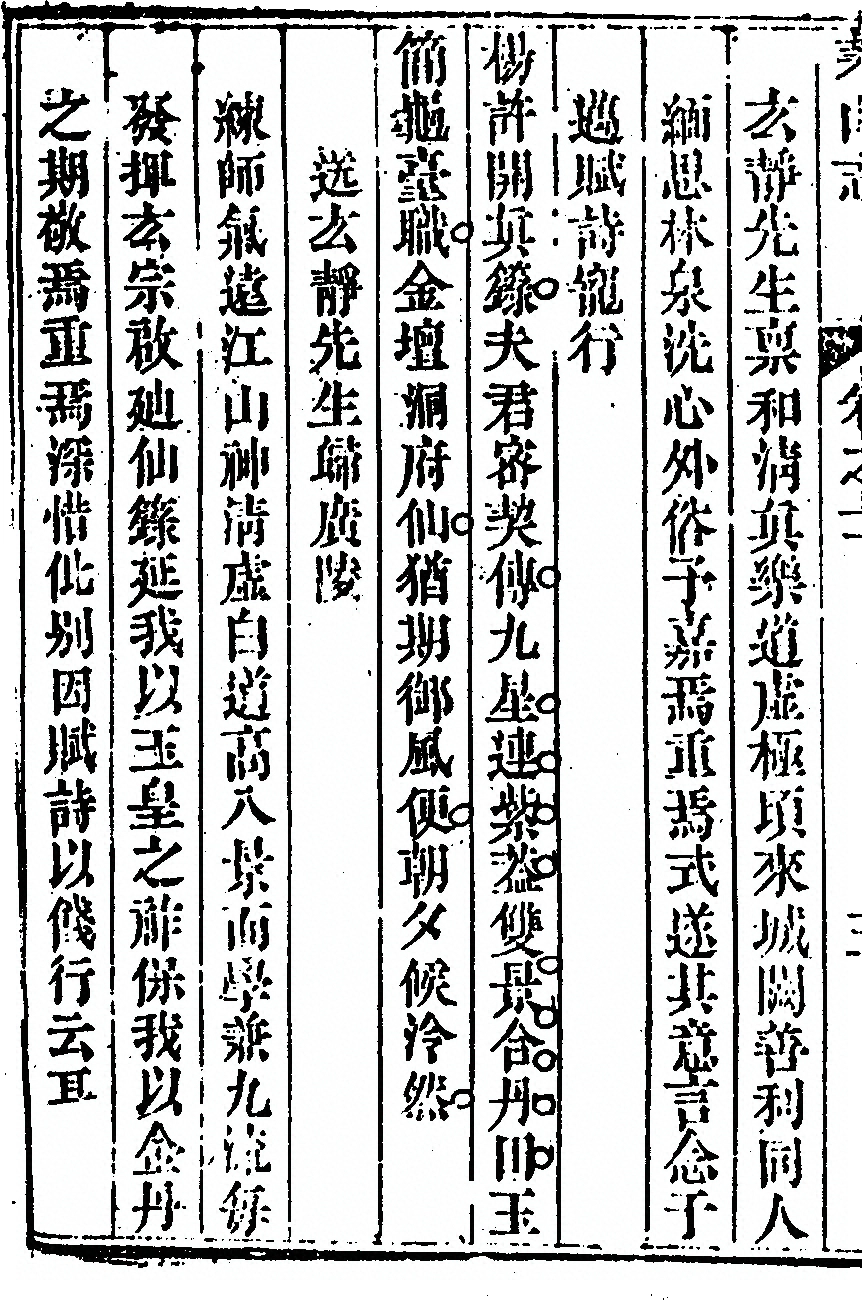 玄靜先生稟和清真樂道虛極頃來城闕善利同人
緬思林泉洗心外俗予嘉焉重焉式遂其意言念于
邁賦詩寵行
楊許開真籙夫君審契傳九星連紫蓋雙景合丹田玉
簡龜臺職金壇洞府仙猶期御風便朝夕候泠然
送玄靜先生歸廣陵
練師氣遠江山神清虛白道高八景而學兼九流每
發揮玄宗啟廸仙籙延我以玉皇之祚保我以金丹
之期敬焉重焉深惜此别因賦詩以餞行云耳